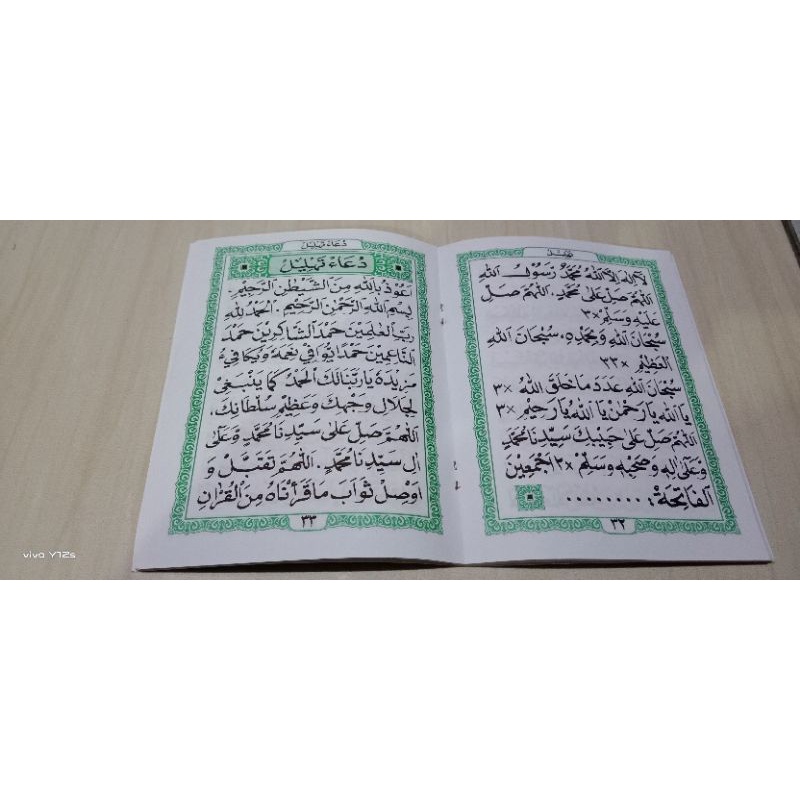 تهليل
لَاۤ إِلٰهَ إِلَّا اللهُ مُحَمَّدٌ رَسُوْلُ اللهِ
اَللّٰهُمَّ صَلِّ عَلٰى مُحَمَّدٍ. اَللّٰهُمَّ صَلِّ
عَلَيْهِ وَسَلِّمْ ×٣
سُبْحَانَ اللهِ وَبِحَمْدِهِ، سُبْحَانَ اللهِ
الْعَظِيْمِ ×٣٣
سُبْحَانَ اللهِ عَدَدَ مَا خَلَقَ اللهُ ×٣
يَا اَللهُ يَا رَحْمٰنُ يَا اَللهُ يَا رَحِيْمُ ×٣
اَللّٰهُمَّ صَلِّ عَلٰى حَبِيْبِكَ سَيِّدِنَا مُحَمَّدٍ
وَعَلٰى اٰلِهِ وَصَحْبِهِ وَسَلِّمْ ×٣ اَجْمَعِيْنَ
اَلْفَاتِحَةُ: .........
٣٢
دعاء تهليل
دُعَاءُ تَهْلِيْلْ
اَعُوْذُ بِاللهِ مِنَ الشَّيْطٰنِ الرَّجِيْمِ
بِسْمِ اللهِ الرَّحْمٰنِ الرَّحِيْمِ. اَلْحَمْدُ لِلّٰهِ
رَبِّ الْعٰلَمِيْنَ حَمْدَ الشَّاكِرِيْنَ حَمْدَ
النَّاعِمِيْنَ حَمْدًا يُّوَافِيْ نِعَمَهُ وَيُكَافِئُ
مَزِيْدَهُ يَا رَبَّنَا لَكَ الْحَمْدُ كَمَا يَنْبَغِيْ
لِجَلَالِ وَجْهِكَ وَعَظِيْمِ سُلْطَانِكَ.
اَللّٰهُمَّ صَلِّ عَلٰى سَيِّدِنَا مُحَمَّدٍ وَّعَلٰى
اٰلِ سَيِّدِنَا مُحَمَّدٍ. اَللّٰهُمَّ تَقَبَّلْ وَ
اَوْصِلْ ثَوَابَ مَا قَرَأْنَاهُ مِنَ الْقُرْاٰنِ
٣٣
vivo Y12s